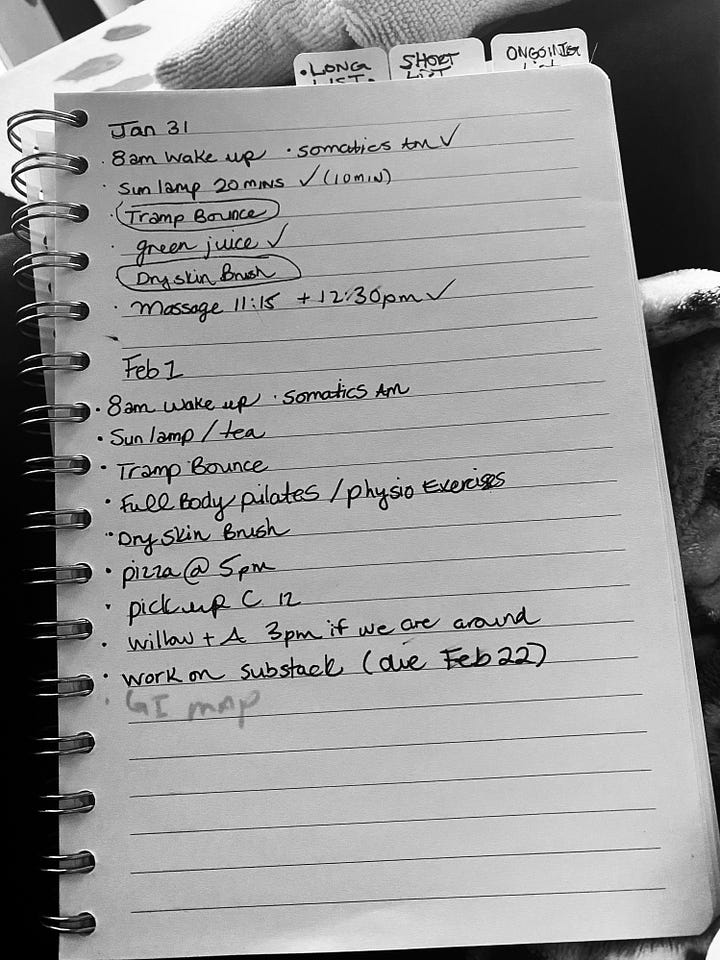 • LONG LIST •
SHORT LIST
ONGOING List
Jan 31
• 8am wake up • somatics Am ✓
• Sun lamp 20 mins ✓ (10min)
• Tramp Bounce
• green juice ✓
Dry skin Brush
• Massage 11:15 + 12:30pm ✓
Feb 1
• 8am wake up • somatics Am
• Sun lamp / tea
• Tramp Bounce
• Full Body pilates / physio Exercises
• Dry skin Brush
• pizza @ 5pm
• pick up C 12
• willow + A 3pm if we are around
• work on substack (due Feb 22)
• GI map